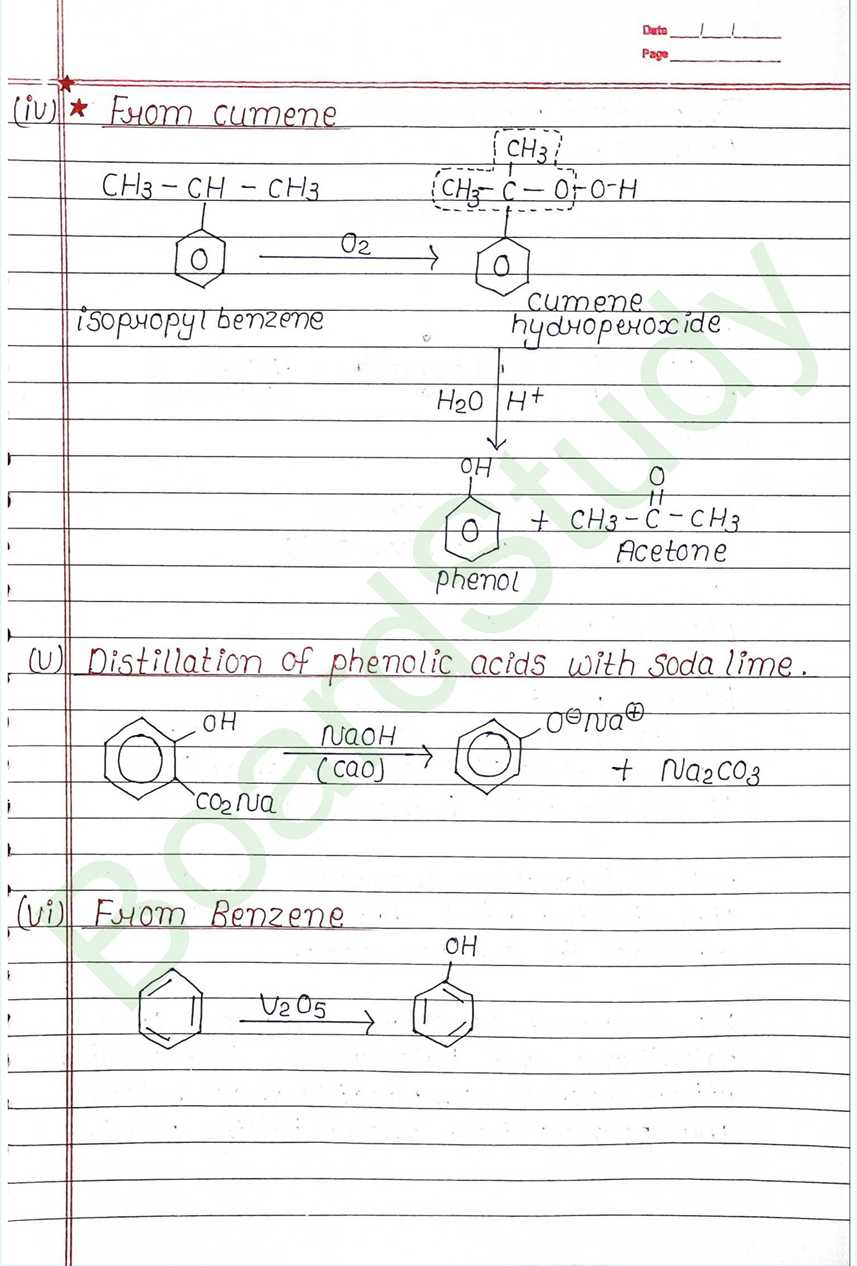 Date / /
Page
(iv) ★ From cumene
CH3
CH3 - CH - CH3
CH3 - C - O - O - H
O2
isopropyl benzene
cumene
hydroperoxide
H2O H+
OH
O
+ CH3 - C - CH3
Acetone
phenol
(v) Distillation of phenolic acids with soda lime.
OH
NaOH
(CaO)
O⊖Na⊕
+ Na2CO3
CO2Na
(vi) From Benzene
OH
V2O5
BoardStudy